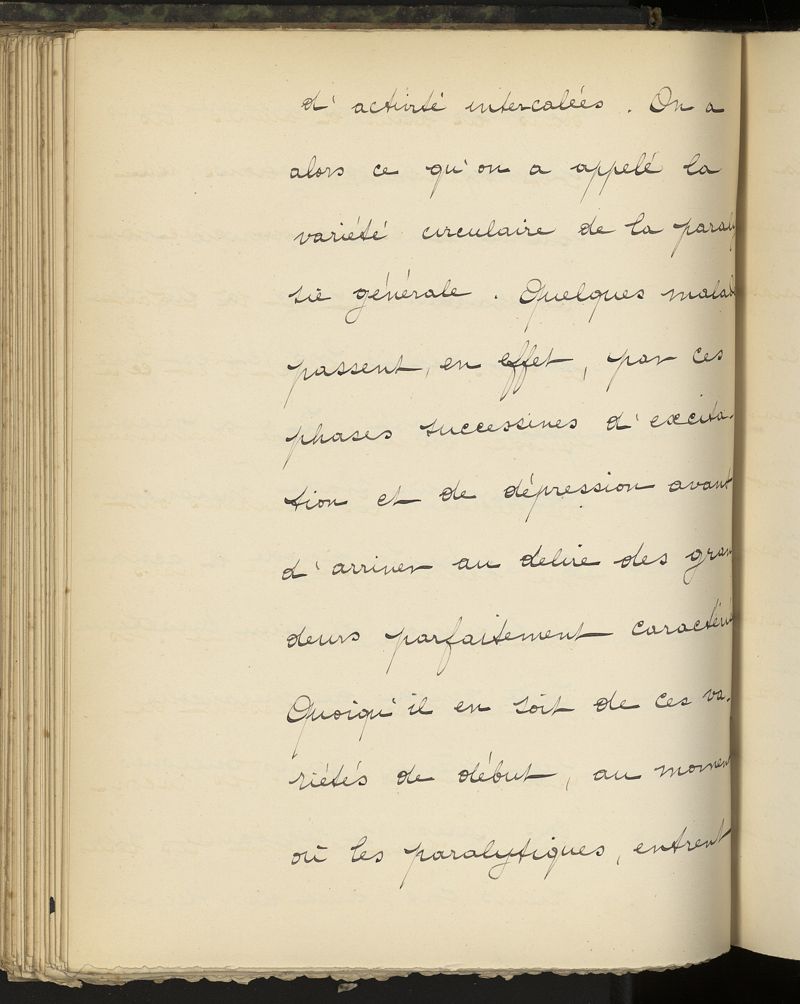 d'activité intercalées. On a
alors ce qu'on a appelé la
variété circulaire de la paraly
sie générale. Quelques malad
passent, en effet, par ces
phases successives d'excita-
tion et de dépression avant
d'arriver au délire des gran
deurs parfaitement caractéri
Quoiqu'il en soit de ces va-
riétés de début, au moment
où les paralytiques, entrent